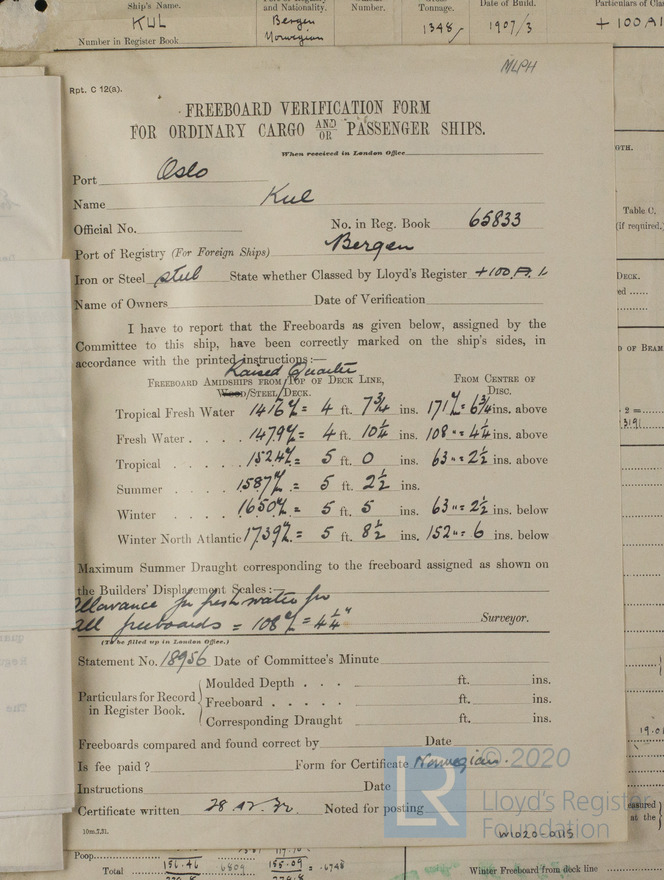 Ship's Name.
and Nationality.
Number.
Tonnage.
Date of Build.
Particulars of Cla
KUL
Bergen
Norwegian
1348
1907/3
+ 100 A1
Number in Register Book
MLPH
Rpt. C 12(a).
FREEBOARD VERIFICATION FORM
FOR ORDINARY CARGO AND/OR PASSENGER SHIPS.
When received in London Office
Port Oslo
Name Kul
Official No. No. in Reg. Book 65833
Port of Registry (For Foreign Ships) Bergen
Iron or Steel steel State whether Classed by Lloyd's Register +100.A.1
Name of Owners Date of Verification
I have to report that the Freeboards as given below, assigned by the
Committee to this ship, have been correctly marked on the ship's sides, in
accordance with the printed instructions:—
Raised Quarter
FREEBOARD AMIDSHIPS FROM TOP OF DECK LINE, FROM CENTRE OF
WOOD/STEEL DECK. DISC.
Tropical Fresh Water 1416 = 4 ft. 7¾ ins. 171 = 6¾ ins. above
Fresh Water . . . . 1479 = 4 ft. 10¼ ins. 108 " = 4¼ ins. above
Tropical . . . . . 1524 = 5 ft. 0 ins. 63 " = 2½ ins. above
Summer . . . . 1587 = 5 ft. 2½ ins.
Winter . . . . . 1650 = 5 ft. 5 ins. 63 " = 2½ ins. below
Winter North Atlantic 1739 = 5 ft. 8½ ins. 152 " = 6 ins. below
Maximum Summer Draught corresponding to the freeboard assigned as shown on
the Builders' Displacement Scales:—
Allowance for fresh water for
all freeboards = 108 = 4¼"
Surveyor.
(To be filled up in London Office.)
Statement No. 18956 Date of Committee's Minute
Particulars for Record in Register Book.
Moulded Depth . . . ft. ins.
Freeboard . . . . . ft. ins.
Corresponding Draught ft. ins.
Freeboards compared and found correct by Date
Is fee paid? Form for Certificate Norwegian.
Instructions Date
Certificate written Noted for posting
10m.7,31.
© 2020
LR
Lloyd's Register
Foundation
W1020-0115
Table C.
(if required.)
DECK.
OF BEAM
Poop
Total 151.46 6804 155.09 = .6748
Winter Freeboard from deck line